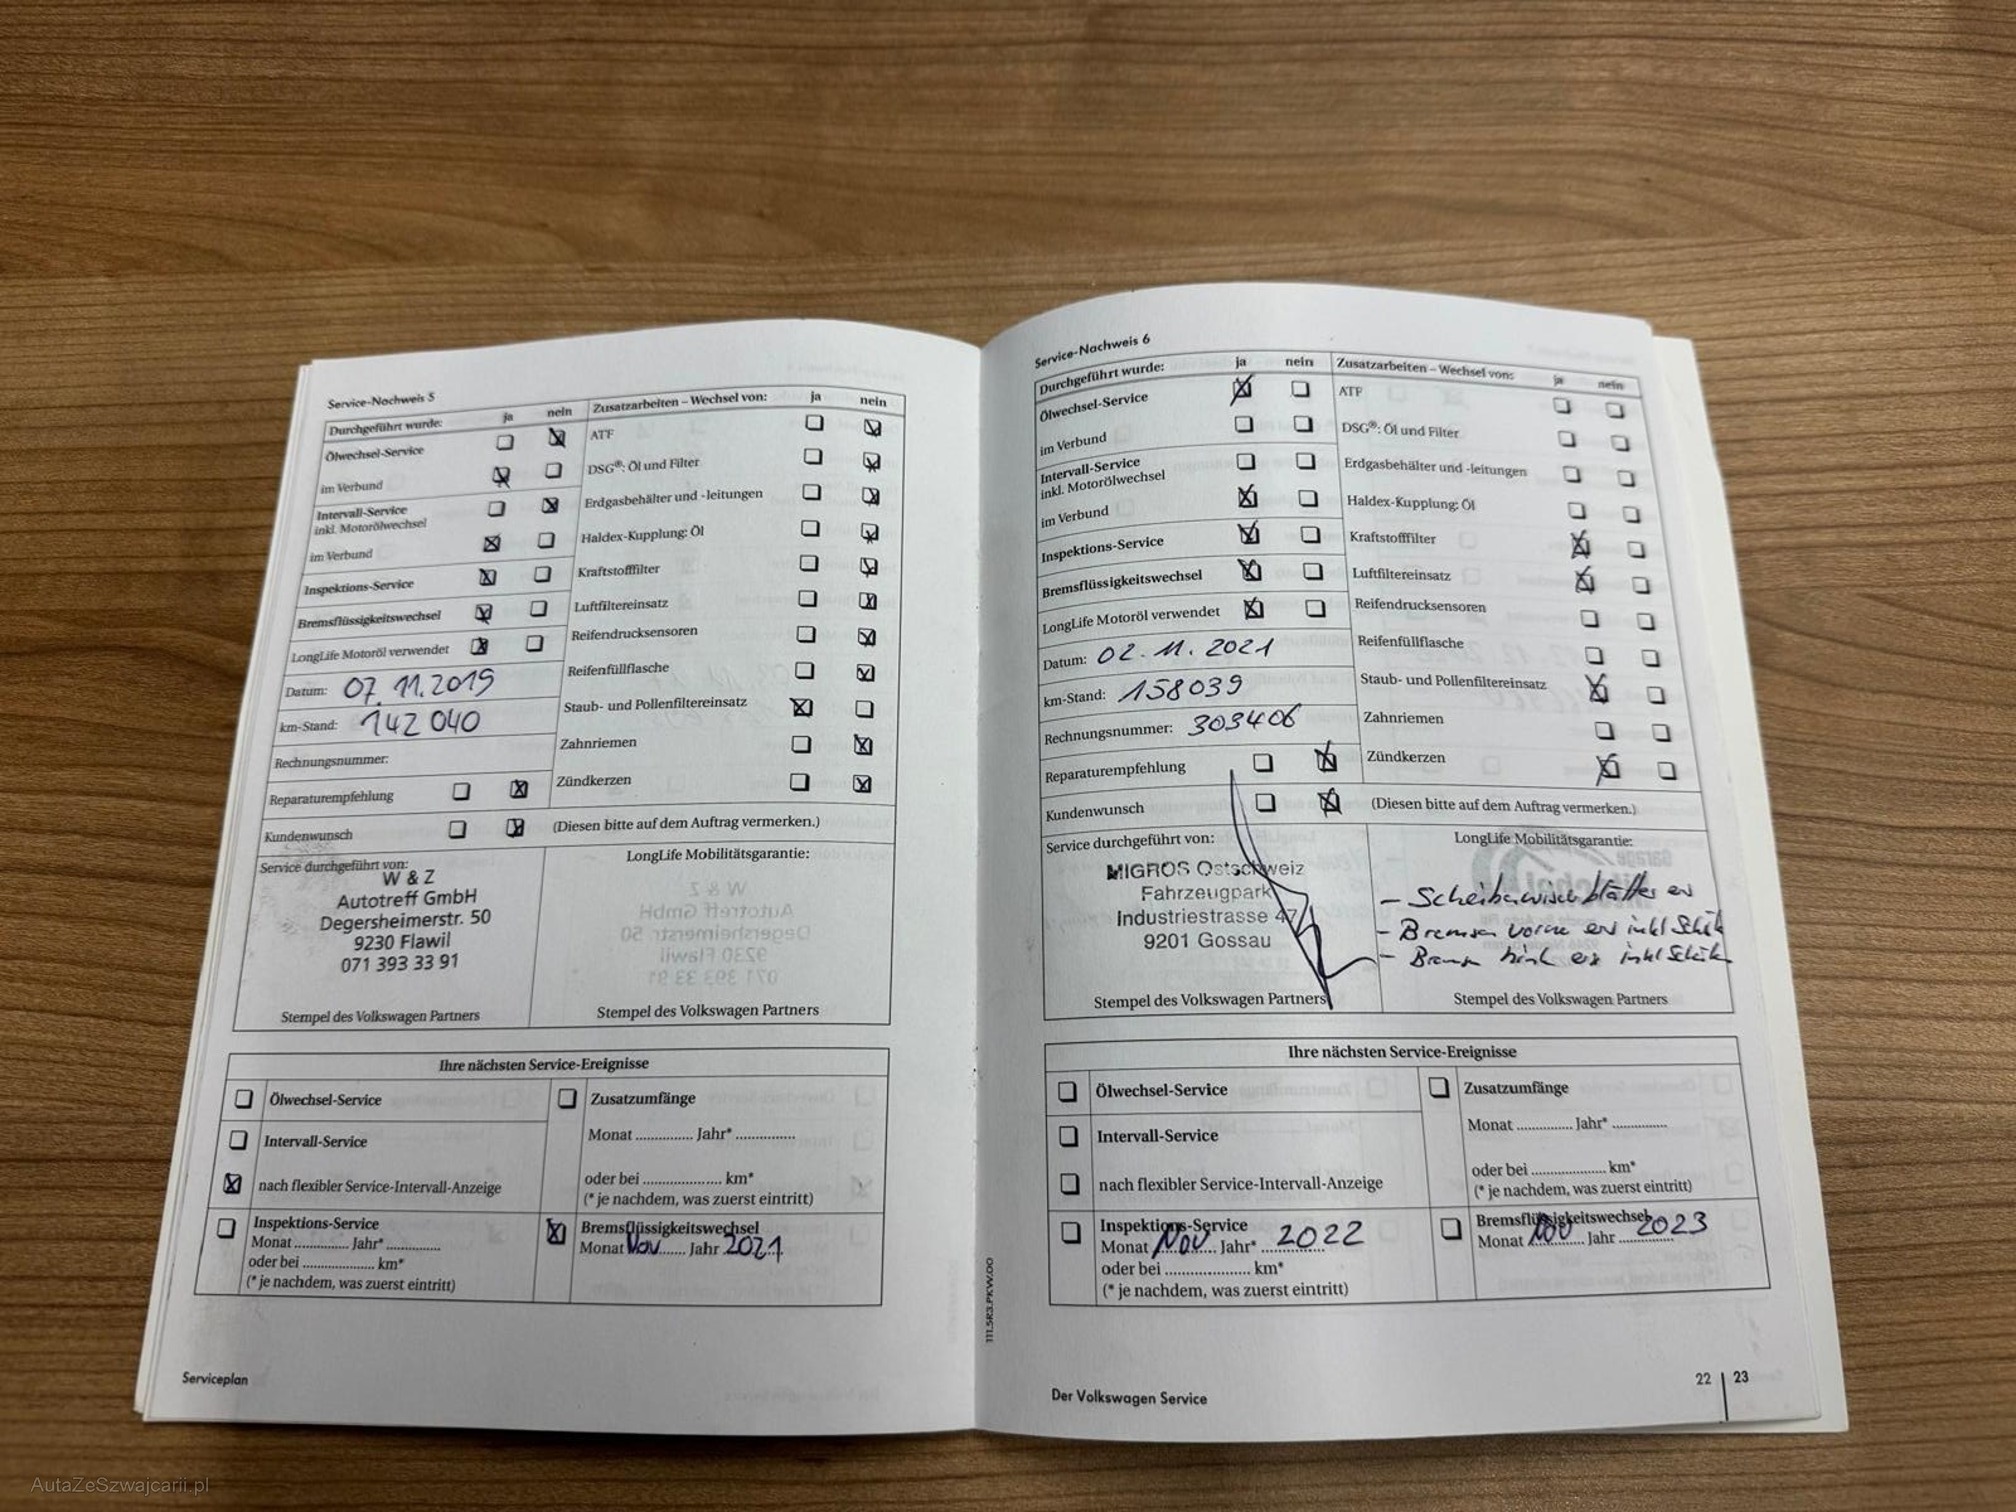 Service-Nachweis 5
Durchgeführt wurde: ja nein
Ölwechsel-Service
im Verbund
Intervall-Service
inkl. Motorölwechsel
im Verbund
Inspektions-Service
Bremsflüssigkeitswechsel
LongLife Motoröl verwendet
Datum: 07.11.2019
km-Stand: 142 040
Rechnungsnummer:
Reparaturempfehlung
Kundenwunsch
Zusatzarbeiten – Wechsel von: ja nein
ATF
DSG®: Öl und Filter
Erdgasbehälter und -leitungen
Haldex-Kupplung: Öl
Kraftstofffilter
Luftfiltereinsatz
Reifendrucksensoren
Reifenfüllflasche
Staub- und Pollenfiltereinsatz
Zahnriemen
Zündkerzen
(Diesen bitte auf dem Auftrag vermerken.)
Service durchgeführt von:
W & Z
Autotreff GmbH
Degersheimerstr. 50
9230 Flawil
071 393 33 91
Stempel des Volkswagen Partners
LongLife Mobilitätsgarantie:
Stempel des Volkswagen Partners
Ihre nächsten Service-Ereignisse
Ölwechsel-Service
Intervall-Service
nach flexibler Service-Intervall-Anzeige
Inspektions-Service
Monat .............. Jahr* ..............
oder bei .................... km*
(* je nachdem, was zuerst eintritt)
Zusatzumfänge
Monat ............... Jahr* ...............
oder bei .................... km*
(* je nachdem, was zuerst eintritt)
Bremsflüssigkeitswechsel
Monat Nov Jahr 2021
Serviceplan
Service-Nachweis 6
Durchgeführt wurde: ja nein
Ölwechsel-Service
im Verbund
Intervall-Service
inkl. Motorölwechsel
im Verbund
Inspektions-Service
Bremsflüssigkeitswechsel
LongLife Motoröl verwendet
Datum: 02.11.2021
km-Stand: 158039
Rechnungsnummer: 303406
Reparaturempfehlung
Kundenwunsch
Zusatzarbeiten – Wechsel von: ja nein
ATF
DSG®: Öl und Filter
Erdgasbehälter und -leitungen
Haldex-Kupplung: Öl
Kraftstofffilter
Luftfiltereinsatz
Reifendrucksensoren
Reifenfüllflasche
Staub- und Pollenfiltereinsatz
Zahnriemen
Zündkerzen
(Diesen bitte auf dem Auftrag vermerken.)
Service durchgeführt von:
MIGROS Ostschweiz
Fahrzeugpark
Industriestrasse 47
9201 Gossau
Stempel des Volkswagen Partners
LongLife Mobilitätsgarantie:
- Scheibenwischblätter
- Bremsen vorne inkl
- inkl
Stempel des Volkswagen Partners
Ihre nächsten Service-Ereignisse
Ölwechsel-Service
Intervall-Service
nach flexibler Service-Intervall-Anzeige
Inspektions-Service
Monat Nov Jahr* 2022
oder bei ..................... km*
(* je nachdem, was zuerst eintritt)
Zusatzumfänge
Monat .............. Jahr* ..............
oder bei ................... km*
(* je nachdem, was zuerst eintritt)
Bremsflüssigkeitswechsel
Monat Nov Jahr 2023
111.5R3.PKW.00
Der Volkswagen Service
22 | 23
AutaZeSzwajcarii.pl